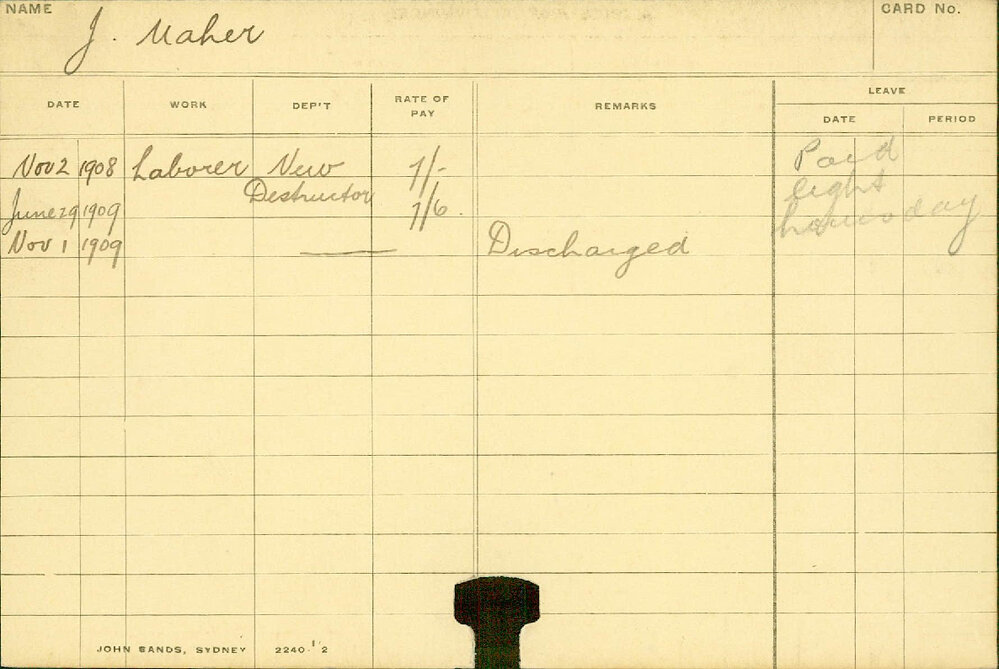 NAME
J. Maher
CARD No.
DATE WORK DEP'T RATE OF PAY REMARKS LEAVE
DATE PERIOD
Nov 2 1908 Laborer New 7/- Paid
Destructor eight
June 29 1909 7/6. day
Nov 1 1909 — Discharged
JOHN SANDS, SYDNEY 2240-1'2